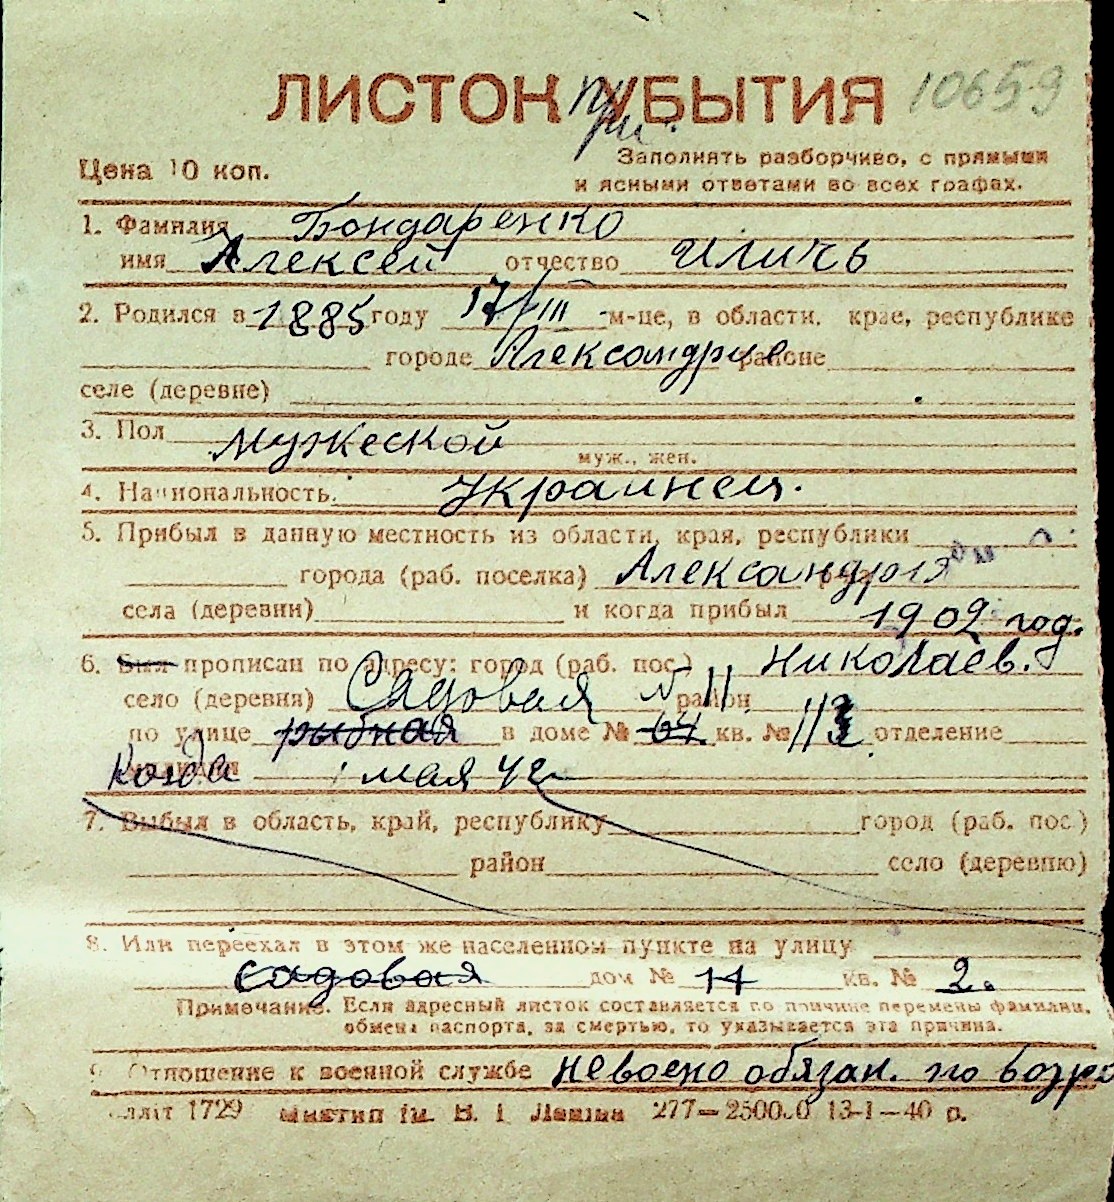 ЛИСТОК УБЫТИЯ 10659
при
Цена 10 коп.
Заполнять разборчиво, с прямыми
и ясными ответами во всех графах.
1. Фамилия Бондаренко
имя Алексей отчество Иличь
2. Родился в 1885 году 17/III м-це, в области, крае, республике
городе Александрие районе
селе (деревне)
3. Пол мужеской
муж., жен.
4. Национальность. Украинец.
5. Прибыл в данную местность из области, края, республики
города (раб. поселка) Александрия
села (деревни) и когда прибыл 1902 год.
6. Был прописан по адресу: город (раб. пос.) Николаев.
село (деревня) Садовая № 11 район
по улице рыбная в доме № 64 кв. № отделение
Когда 1 мая 42г
7. Выбыл в область, край, республику город (раб. пос.)
район село (деревню)
8. Или переехал в этом же населенном пункте на улицу
садовая дом № 14 кв. № 2.
Примечание. Если адресный листок составляется по причине перемены фамилии,
обмена паспорта, за смертью, то указывается эта причина.
9 Отношение к военной службе невоено обязан. по возра
1729 ім. В. І. Леніна 277— 13-I—40 р.